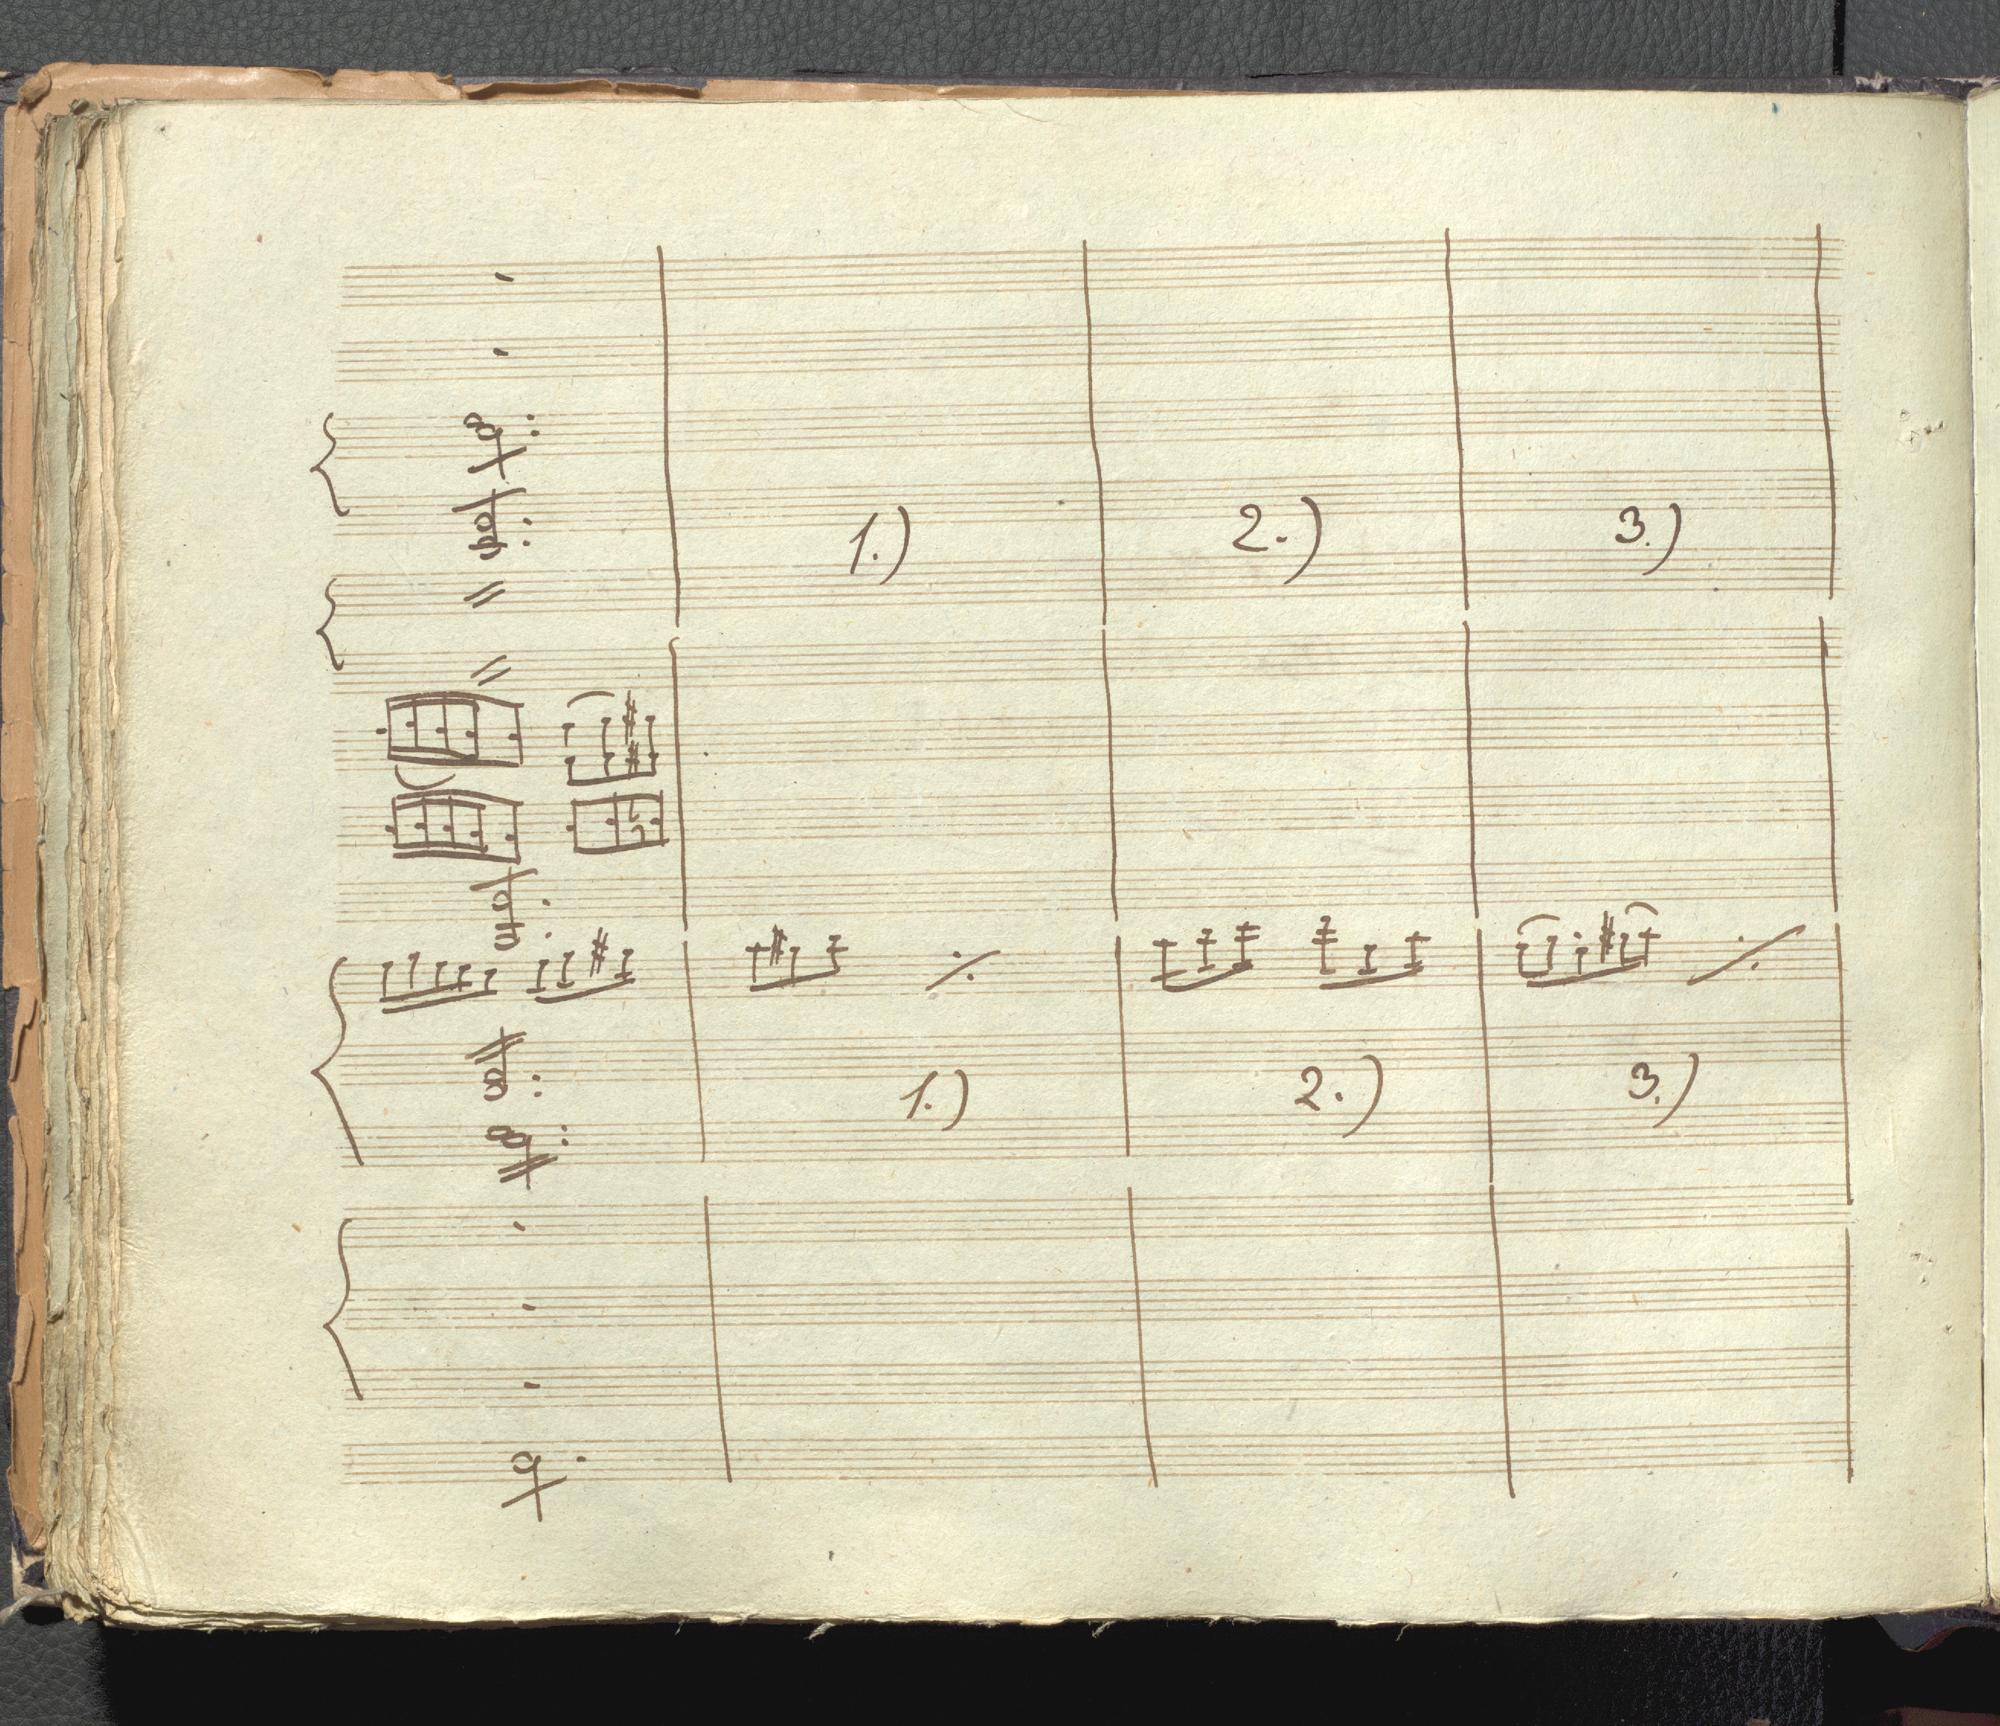 1.) 2.) 3.)
1.) 2.) 3.)